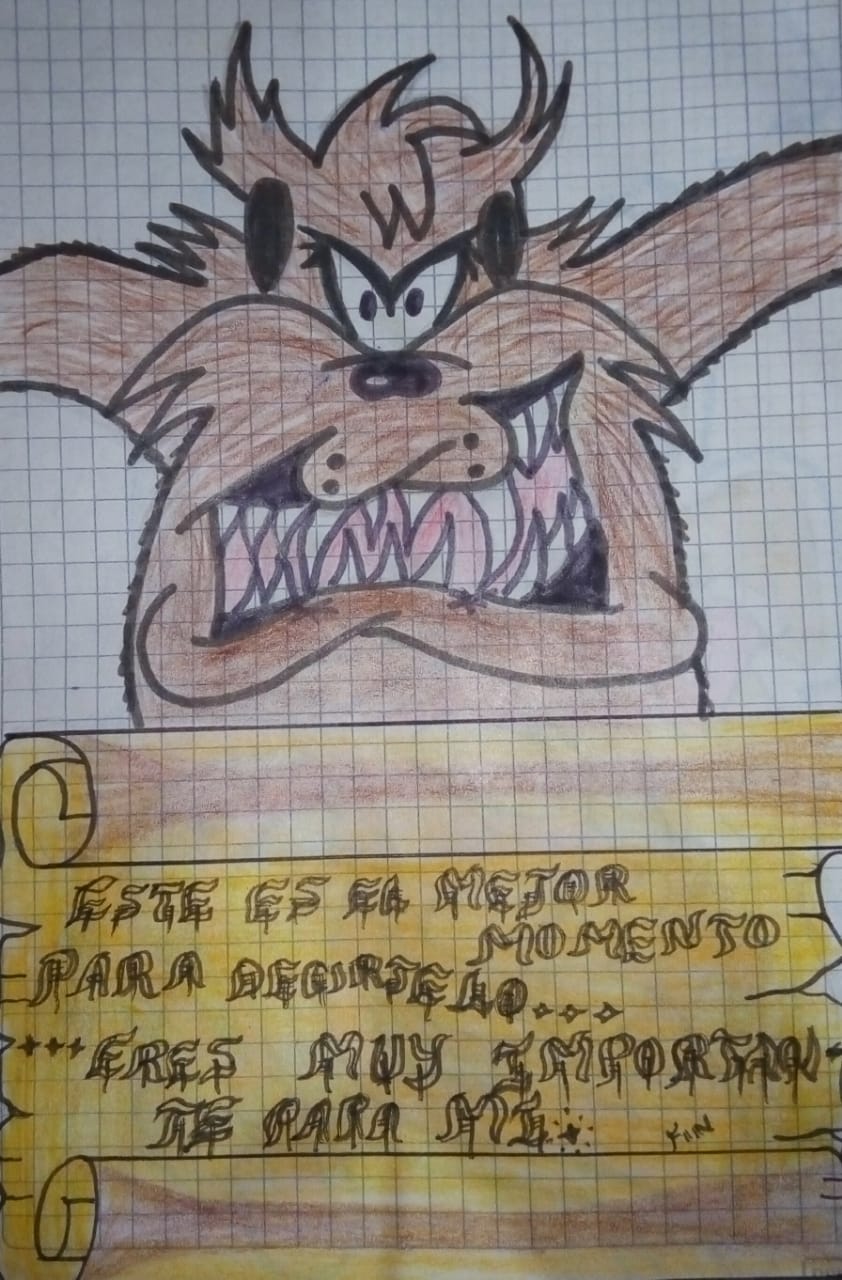 ESTE ES EL MEJOR
MOMENTO
PARA DECIRTELO...
...ERES MUY IMPORTAN-
TE PARA MI